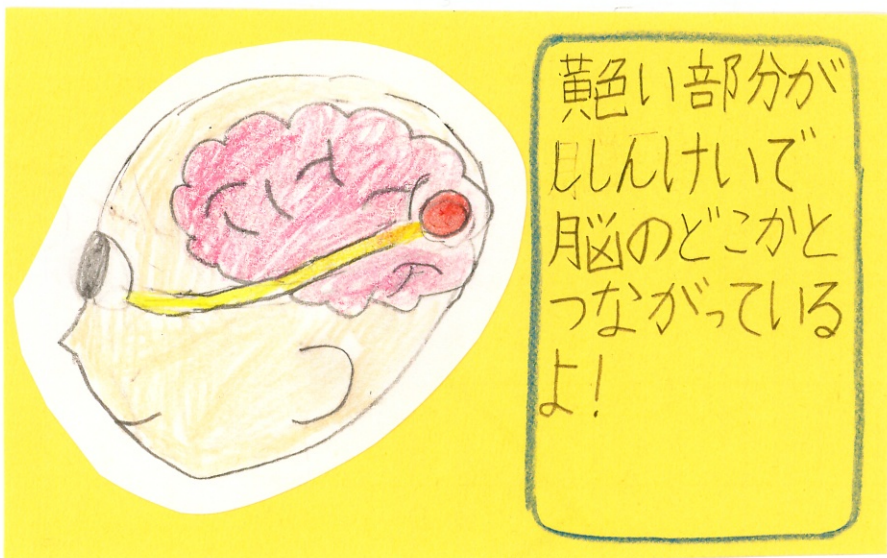 黄色い部分が
ししんけいで
脳のどこかと
つながっている
よ！